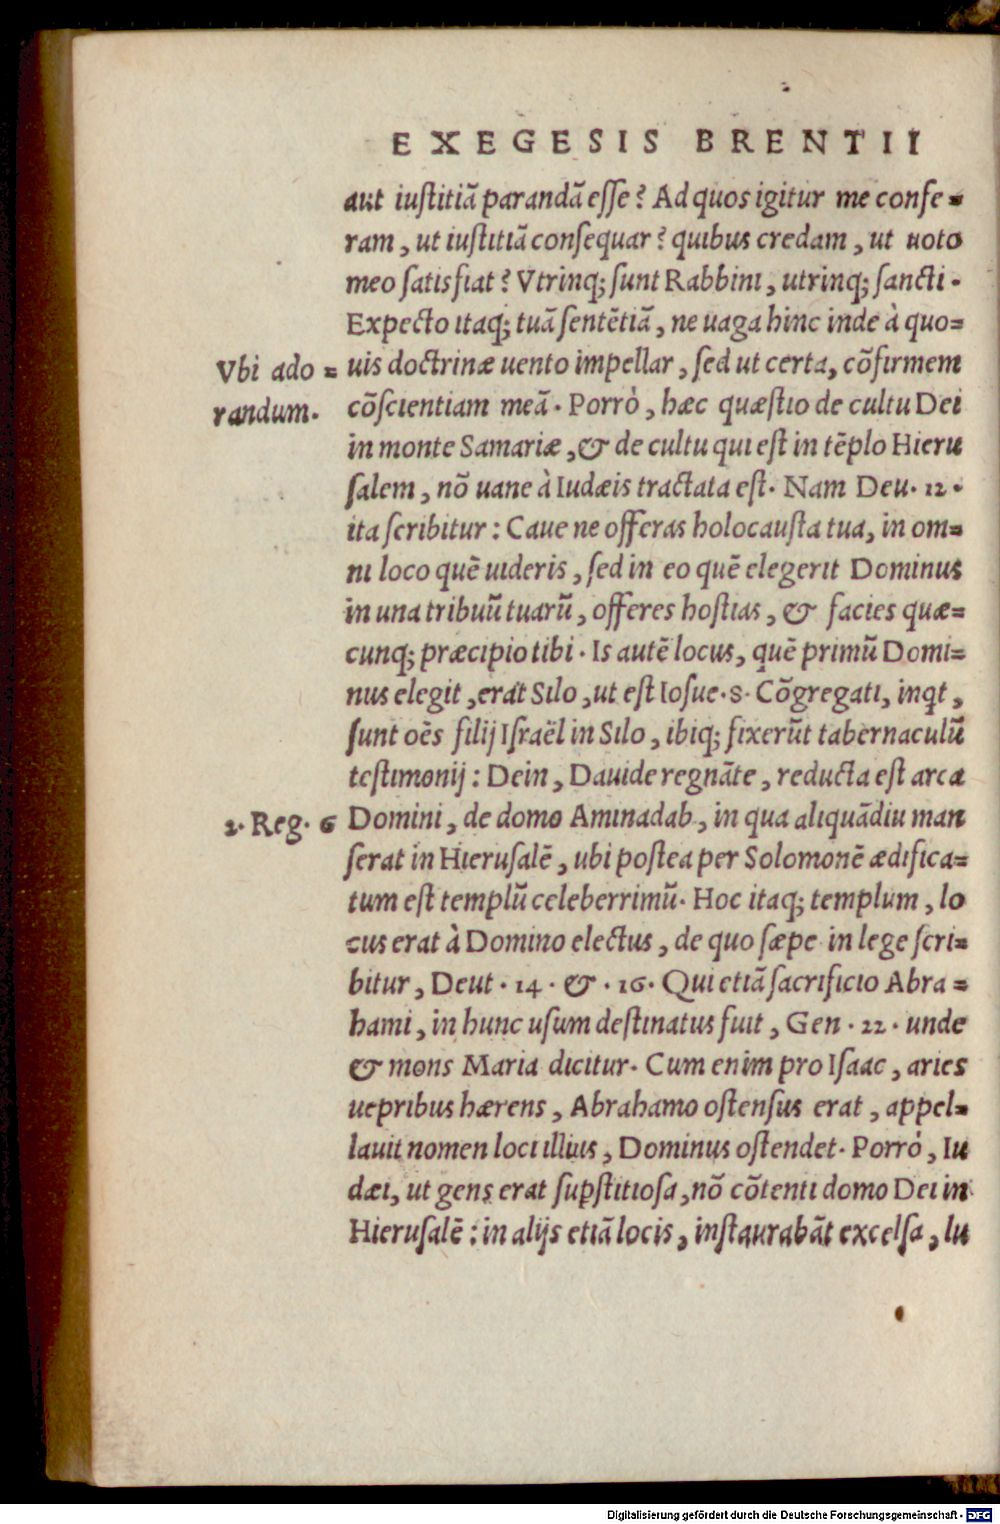 EXEGESIS BRENTII
aut iustitiã parandã esse? Ad quos igitur me confe=
ram, ut iustitiã consequar? quibus credam, ut uoto
meo satisfiat? Vtrinq; sunt Rabbini, utrinq; sancti.
Expecto itaq; tuã sentẽtiã, ne uaga hinc inde à quo=
Vbi ado= uis doctrinæ uento impellar, sed ut certa, cõfirmem
randum. cõscientiam meã. Porrò, hæc quæstio de cultu Dei
in monte Samariæ, & de cultu qui est in tẽplo Hieru
salem, nõ uane à Iudæis tractata est. Nam Deu. 12.
ita scribitur: Caue ne offeras holocausta tua, in om=
ni loco quẽ uideris, sed in eo quẽ elegerit Dominus
in una tribuũ tuarũ, offeres hostias, & facies quæ=
cunq; præcipio tibi. Is autẽ locus, quẽ primũ Domi=
nus elegit, erat Silo, ut est Iosue. 8. Cõgregati, inqt,
sunt oẽs filij Israël in Silo, ibiq; fixerũt tabernaculũ
testimonij: Dein, Dauide regnãte, reducta est arca
2. Reg. 6 Domini, de domo Aminadab, in qua aliquãdiu man
serat in Hierusalẽ, ubi postea per Solomonẽ ædifica=
tum est templũ celeberrimũ. Hoc itaq; templum, lo
cus erat à Domino electus, de quo sæpe in lege scri=
bitur, Deut. 14. & . 16. Qui etiã sacrificio Abra=
hami, in hunc usum destinatus fuit, Gen. 22. unde
& mons Maria dicitur. Cum enim pro Isaac, aries
uepribus hærens, Abrahamo ostensus erat, appel=
lauit nomen loci illius, Dominus ostendet. Porrò, Iu
dæi, ut gens erat supstitiosa, nõ cõtenti domo Dei in
Hierusalẽ: in alijs etiã locis, instaurabãt excelsa, lu
Digitalisierung gefördert durch die Deutsche Forschungsgemeinschaft - DFG